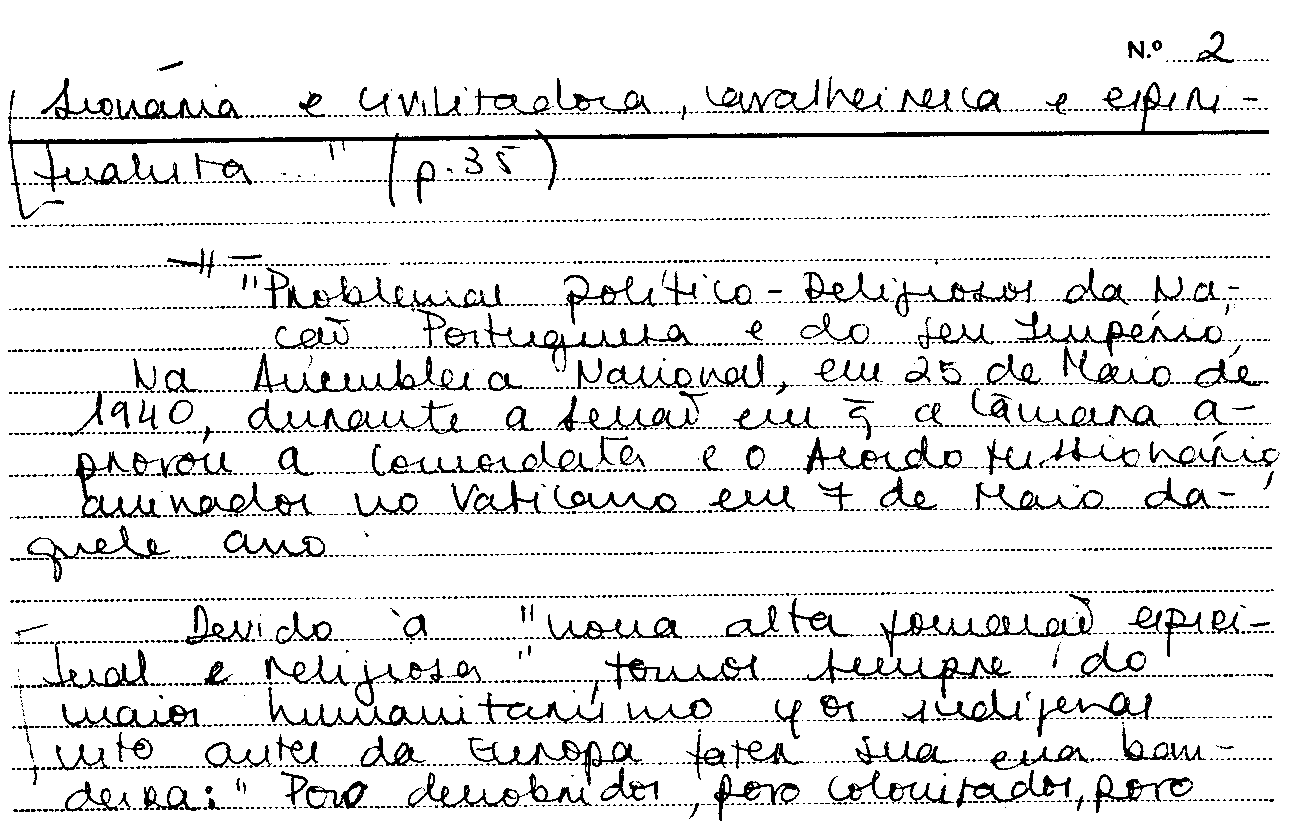 N.º 2
sionária e civilizadora, cavalheiresca e espiri-
tualista..." (p. 35)
"Problemas político-Religiosos da Na-
ção Portuguesa e do seu Império,
Na Assembleia Nacional, em 25 de Maio de
1940, durante a sessão em q̄ a Câmara a-
provou a Concordata e o Acordo Missionário,
assinados no Vaticano em 7 de Maio da-
quele ano.
- Devido à "nossa alta formação espiri-
tual e religiosa", fomos sempre do
maior humanitarismo c/ os indígenas
isto antes da Europa fazer sua essa ban-
deira: "Povo descobridor, povo colonizador, povo